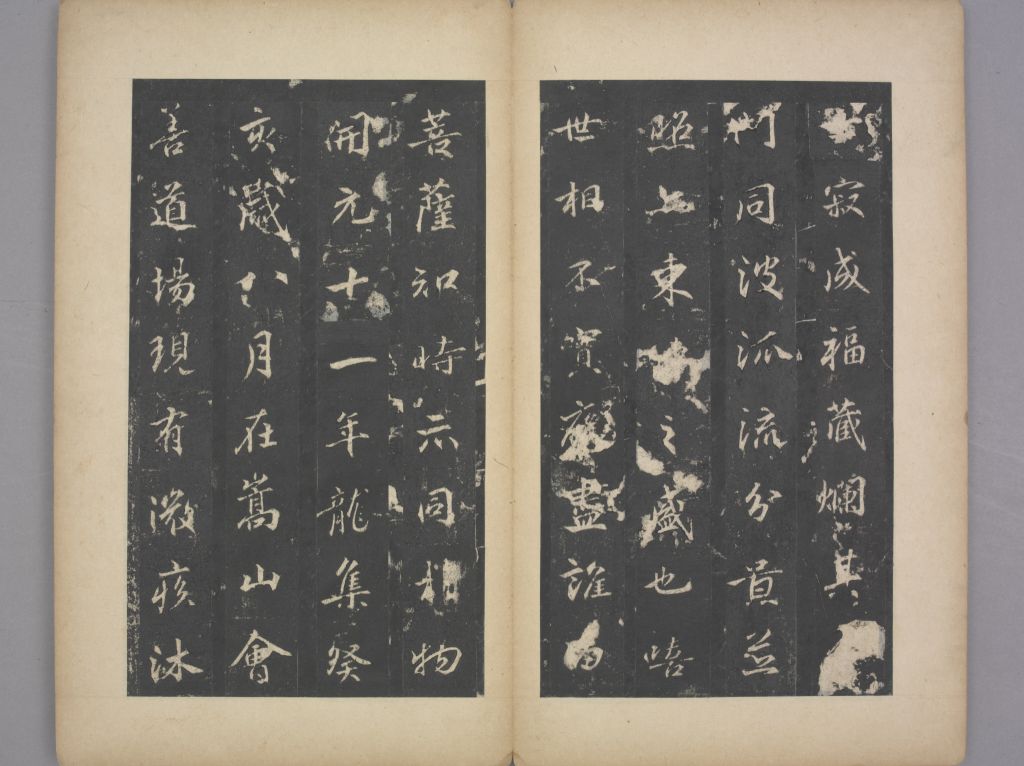 寂成福藏爛其
門同波派流分並
照東之盛也嘻
世相不實觀盡誰留
菩薩知時示同物
開元十一年龍集癸
亥歲八月在嵩山會
善道場現有微疾沐